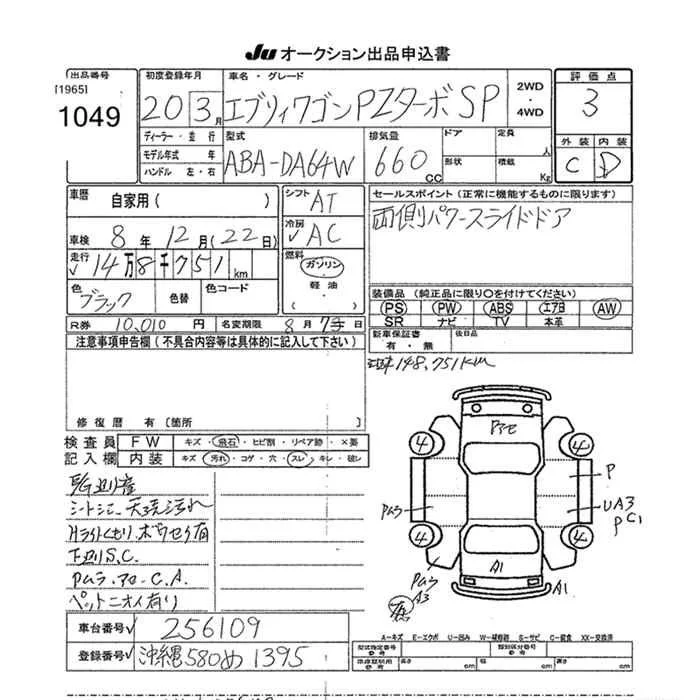 JU オークション出品申込書
出品番号
[1965]
1049
初度登録年月
20 3月
車名・グレード
エブリィワゴン PZターボSP
2WD
・
4WD
評価点
3
外装 内装
C D
ディーラー・並行
モデル年式 年
ハンドル 左・右
型式
ABA-DA64W
排気量
660 CC
ドア
形状
定員
人
積載
Kg
車歴 自家用( )
車検 8年 12月(22日)
走行
✓ 14万8千751 km
色
ブラック
色替
色コード
シフト AT
冷房
✓ AC
燃料
ガソリン
・
軽油
・
( )
セールスポイント(正常に機能するものに限ります)
両側パワースライドドア
装備品(純正品に限り○を付けてください)
PS PW ABS エアB AW
SR ナビ TV 本革
新車保証書
有・無
後日品
R券 10,010 円
名変期限 8月 日
注意事項申告欄(不具合内容等は具体的に記入して下さい)
148,751km
修復歴 有〔箇所 〕
検査員
記入欄
FW キズ・飛石・ヒビ割・リペア跡・×要
内装 キズ・汚れ・コゲ・穴・スレ・キレ・破レ
シートシミ、天張汚れ
Hライトくもり、ボウセイ有
下廻りS.C.
Pムラ・アロ・C.A.
ペットニオイ有り
4 4
4 4
P
UA3
PC1
Pムラ
Pムラ
A3
A1
A1
A-キズ E-エクボ U-凹み W-補修跡 S-サビ C-腐食 XX-交換済
車台番号✓ 256109
登録番号✓ 沖縄580め1395
型式指定番号
参考
類別区分番号
参考
冷凍証取用
参考
長さ cm
幅 cm
高さ cm